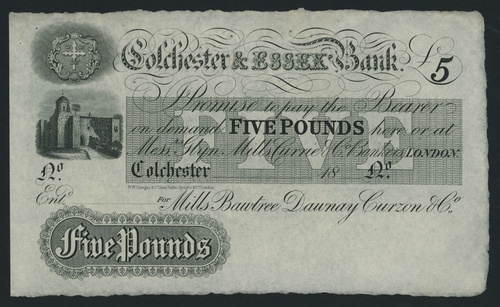 Colchester & ESSEX Bank. £5
Promise to pay the Bearer
on demand FIVE POUNDS here or at
Mess.rs Glyn, Mills, Currie & Co. Bankers, LONDON.
FIVE
Colchester 18
No. No.
Entd.
For Mills, Bawtree, Dawnay, Curzon & Co.
Five Pounds